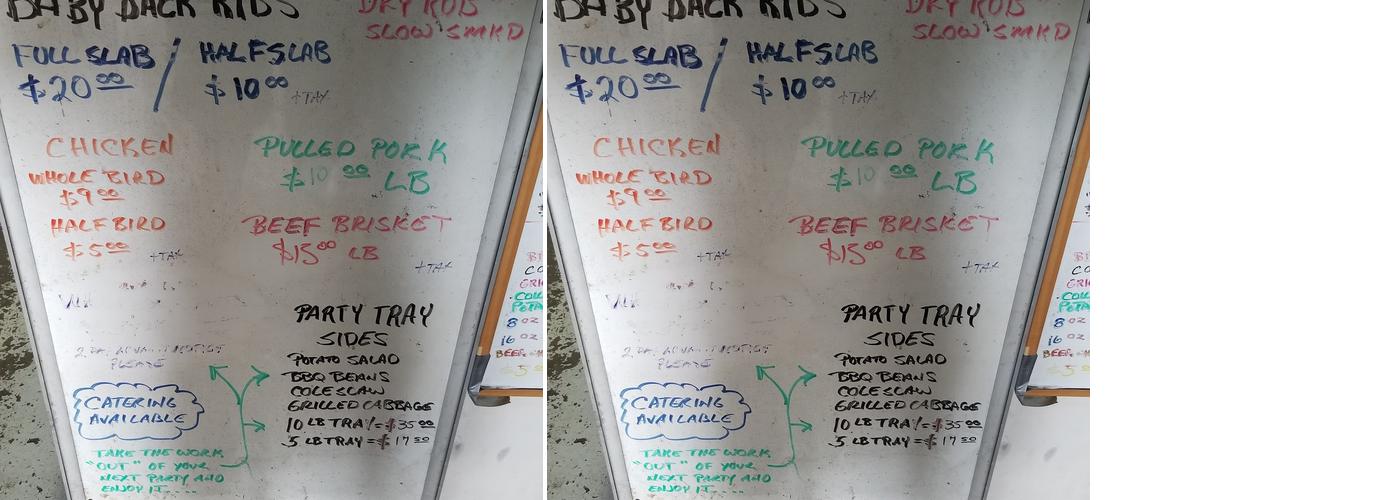 BABY BACK RIBS
DRY RUB
SLOW SMKD
FULL SLAB / HALF SLAB
$20.00 $10.00 +TAX
CHICKEN
WHOLE BIRD
$9.00
HALF BIRD
$5.00
+TAX
PULLED PORK
$10.00 LB
BEEF BRISKET
$15.00 LB
+TAX
PLEASE
CATERING
AVAILABLE
TAKE THE WORK
"OUT" OF YOUR
NEXT PARTY AND
ENJOY IT....
PARTY TRAY
SIDES
POTATO SALAD
BBQ BEANS
COLE SLAW
GRILLED CABBAGE
10 LB TRAY=$35.00
5 LB TRAY=$17.50
8 OZ
16 OZ
BABY BACK RIBS
DRY RUB
SLOW SMKD
FULL SLAB / HALF SLAB
$20.00 $10.00 +TAX
CHICKEN
WHOLE BIRD
$9.00
HALF BIRD
$5.00
+TAX
PULLED PORK
$10.00 LB
BEEF BRISKET
$15.00 LB
+TAX
PLEASE
CATERING
AVAILABLE
TAKE THE WORK
"OUT" OF YOUR
NEXT PARTY AND
ENJOY IT....
PARTY TRAY
SIDES
POTATO SALAD
BBQ BEANS
COLE SLAW
GRILLED CABBAGE
10 LB TRAY=$35.00
5 LB TRAY=$17.50
8 OZ
16 OZ